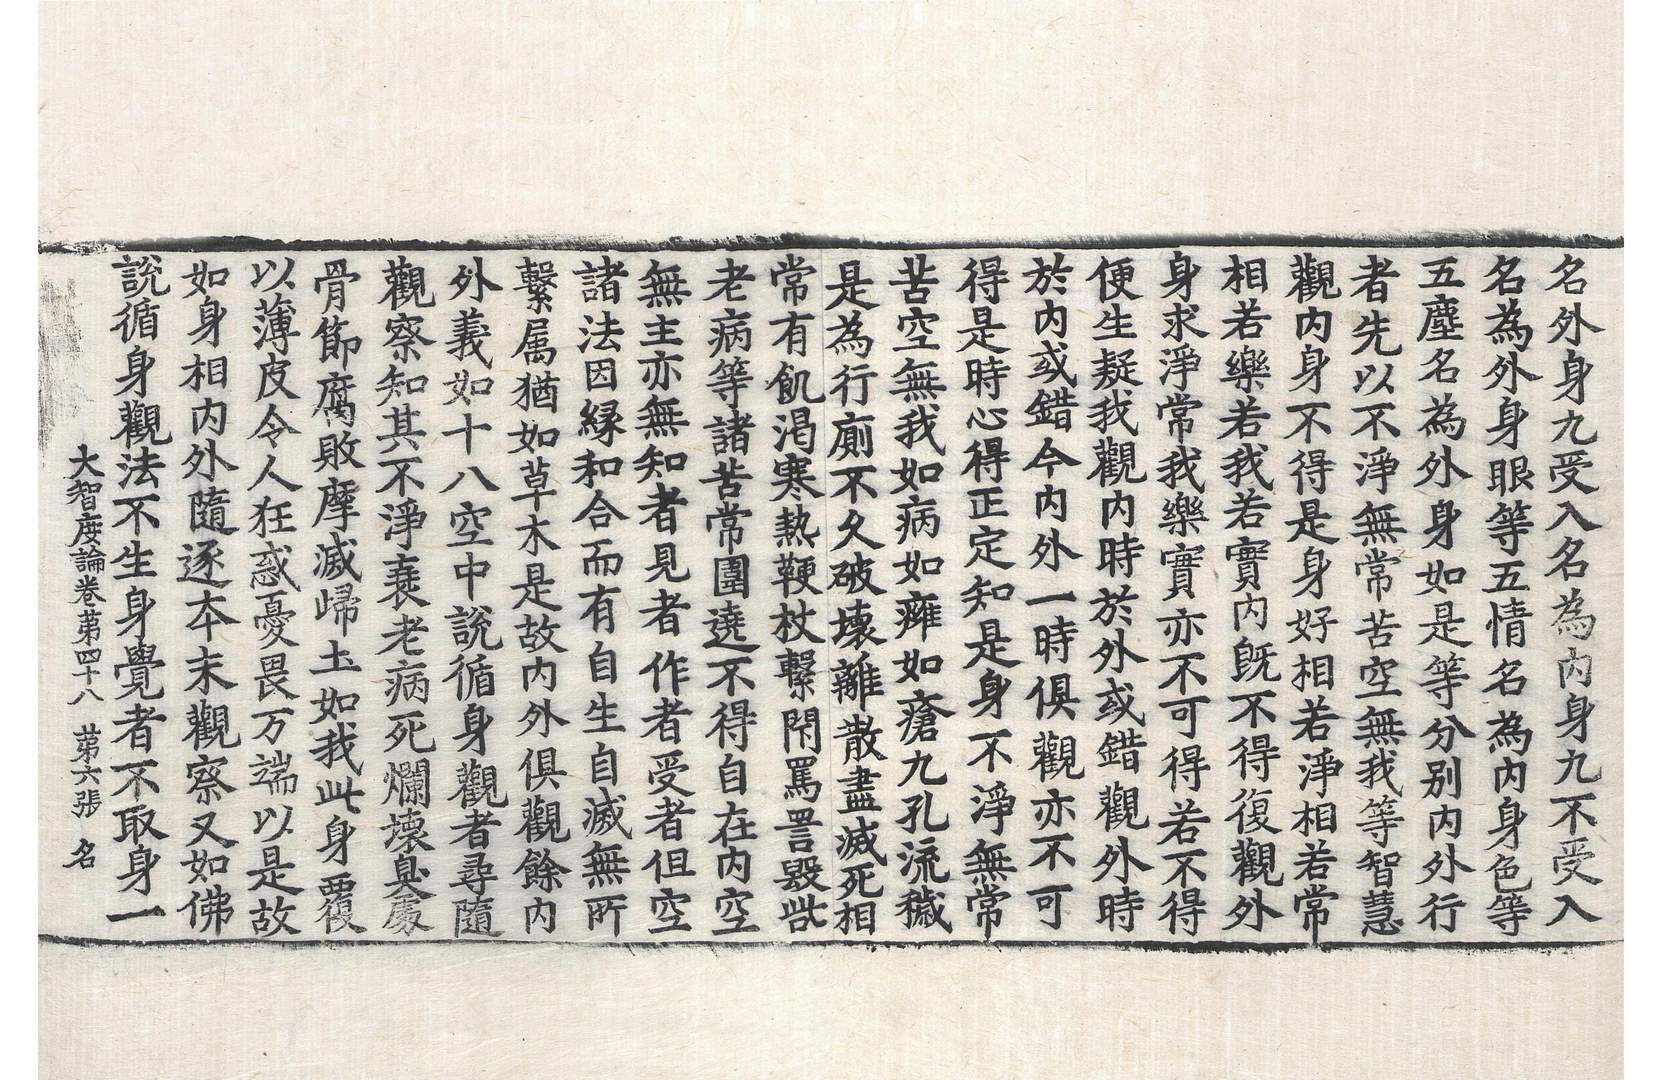 名外身九受入名為內身九不受入
名為外身眼等五情名為內身色等
五塵名為外身如是等分別內外行
者先以不淨無常苦空無我等智慧
觀內身不得是身好相若淨相若常
相若樂若我若實內旣不得復觀外
身求淨常我樂實亦不可得若不得
便生疑我觀內時於外或錯觀外時
於內或錯今內外一時俱觀亦不可
得是時心得正定知是身不淨無常
苦空無我如病如癕如瘡九孔流穢
是為行廁不久破壞離散盡滅死相
常有飢渴寒熱鞕杖繫閇罵詈毀呰
老病等諸苦常圍遶不得自在內空
無主亦無知者見者作者受者但空
諸法因緣和合而有自生自滅無所
繫属猶如草木是故內外俱觀餘內
外義如十八空中說循身觀者尋隨
觀察知其不淨衰老病死爛壞臭處
骨節腐敗摩滅歸土如我此身覆
以薄皮令人狂惑憂畏万端以是故
如身相內外隨逐本末觀察又如佛
說循身觀法不生身覺者不取身一
大智度論卷苐四十八 苐六張 名